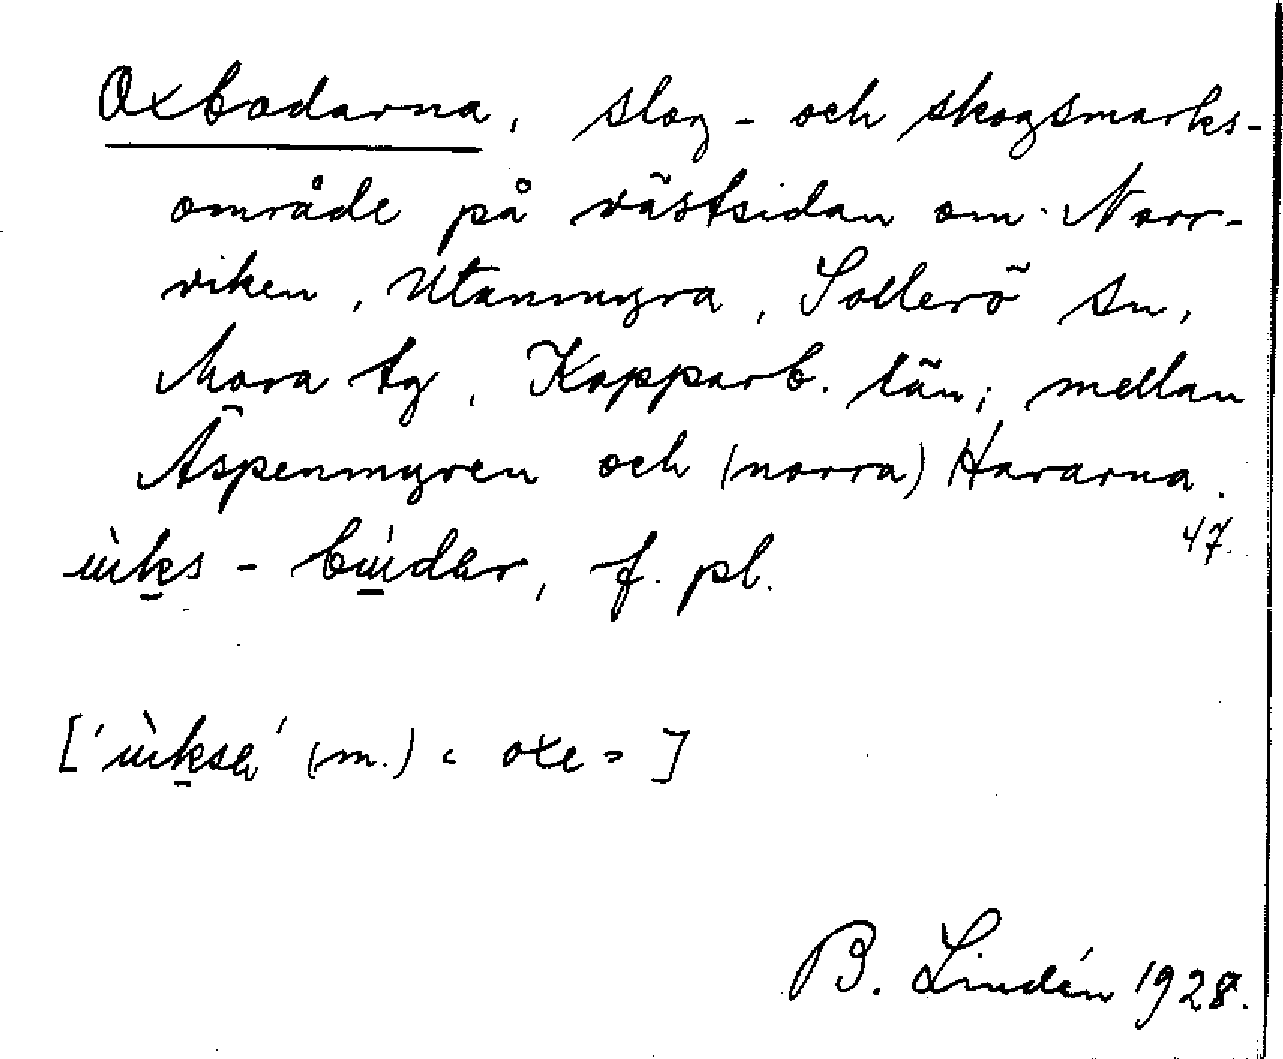 Oxbodarna, slog- och skogsmarks-
område på västsidan om Norr-
viken, Utanmyra, Sollerö sn,
Mora tg, Kopparb. län; mellan
Äspenmyren och (norra) Hararna.
47.
ùks - bùdar, f. pl.
['ùksa' (m.) = oxe = ]
B. Lindén 1928.